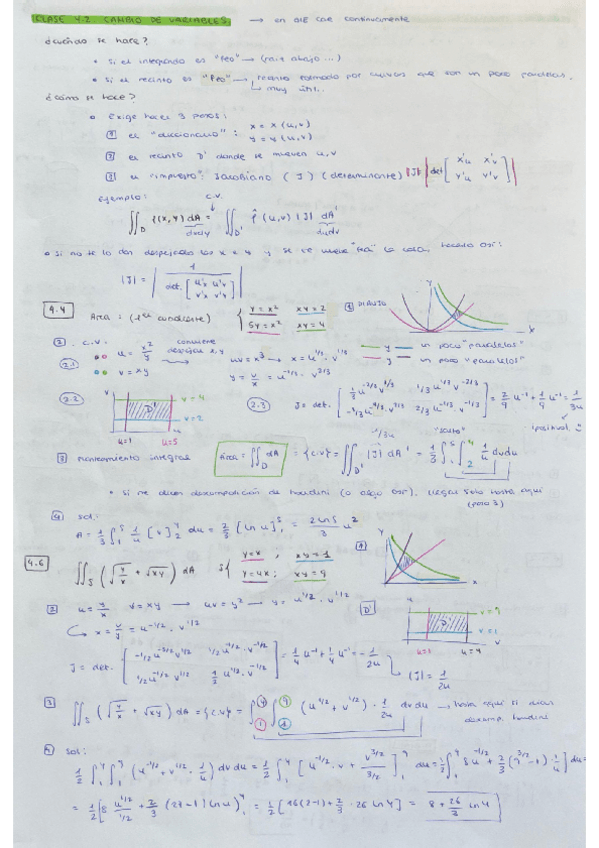 CLASE 4.2 CAMBIO DE VARIABLES → en
¿cuándo se hace?
• Si el integrando es "feo" → (raíz abajo...)
• Si el recinto es "feo" → recinto formado por curvas que son un poco paralelas.
↳ muy útil.
¿cómo se hace?
• Exige hacer 3 pasos:
1 el "diccionario": x = x(u,v)
y = y(u,v)
2 el recinto D' donde se mueven u,v
3 el "impuesto": Jacobiano (J) (determinante) |J| = |det [x'u x'v
y'u y'v]|
ejemplo: c.v.
∬_D f(x,y) dA = ∬_D' f̂(u,v) |J| dA'
dxdy dudv
• Si no te lo dan despejado
|J| = | 1 / det. [u'x u'y
v'x v'y] |
4.4 Área: (1er cuadrante) { y = x² xy = 2
5y = x² xy = 4
2 c.v.: conviene despejar x,y
2.1 u = x²/y uv = x³ → x = u^1/3 · v^1/3
v = xy y = v/x = u^-1/3 · v^2/3
y → un poco "paralelos"
y → un poco "paralelos"
2.2 v v=4 D' v=2 u=1 u=5
2.3 J = det. [1/3 u^-2/3 v^1/3 1/3 u^1/3 v^-2/3
-1/3 u^-4/3 v^2/3 2/3 u^-1/3 v^-1/3] = 2/9 u^-1 + 1/9 u^-1 = 1/3u
¡positivo!
3 Planteamiento integral Área = ∬_D dA = {c.v} = ∬_D' |J| dA' = 1/3 ∫_1^5 ∫_2^4 1/u dvdu
• Si me dicen descomposición de houdini (o algo así), llegas solo hasta aquí
(paso 3)
4 Sol:
A = 1/3 ∫_1^5 1/u [v]_2^4 du = 2/3 [ln u]_1^5 = 2 ln 5 / 3 u²
4.6 ∬_S (√(y/x) + √xy) dA S { y = x, xy = 1
y = 4x; xy = 9
2 u = y/x v = xy → uv = y² → y = u^1/2 · v^1/2
↳ x = v/y = u^-1/2 · v^1/2
D' v=9 D' v=1 u=1 u=4
J = det. = -1/4 u^-1 - 1/4 u^-1 = -1/2u
|J| = 1/2u
3 ∬_S (√(y/x) + √xy) dA = {c.v} = ∫_1^4 ∫_1^9 (u^1/2 + v^1/2) · 1/2u dvdu → hasta aquí si dicen
descomp. houdini
4 Sol:
1/2 ∫_1^4 ∫_1^9 (u^-1/2 + v^1/2 · 1/u) dvdu = 1/2 ∫_1^4 [u^-1/2 · v + v^3/2 / 3/2 ]_1^9 du = 1/2 ∫_1^4 [8u^-1/2 + 2/3 (9^3/2 - 1) · 1/u] du =
= 1/2 [8 u^1/2 / 1/2 + 2/3 (27-1) ln u]_1^4 = 1/2 [16(2-1) + 2/3 · 26 ln 4] = 8 + 26/3 ln 4